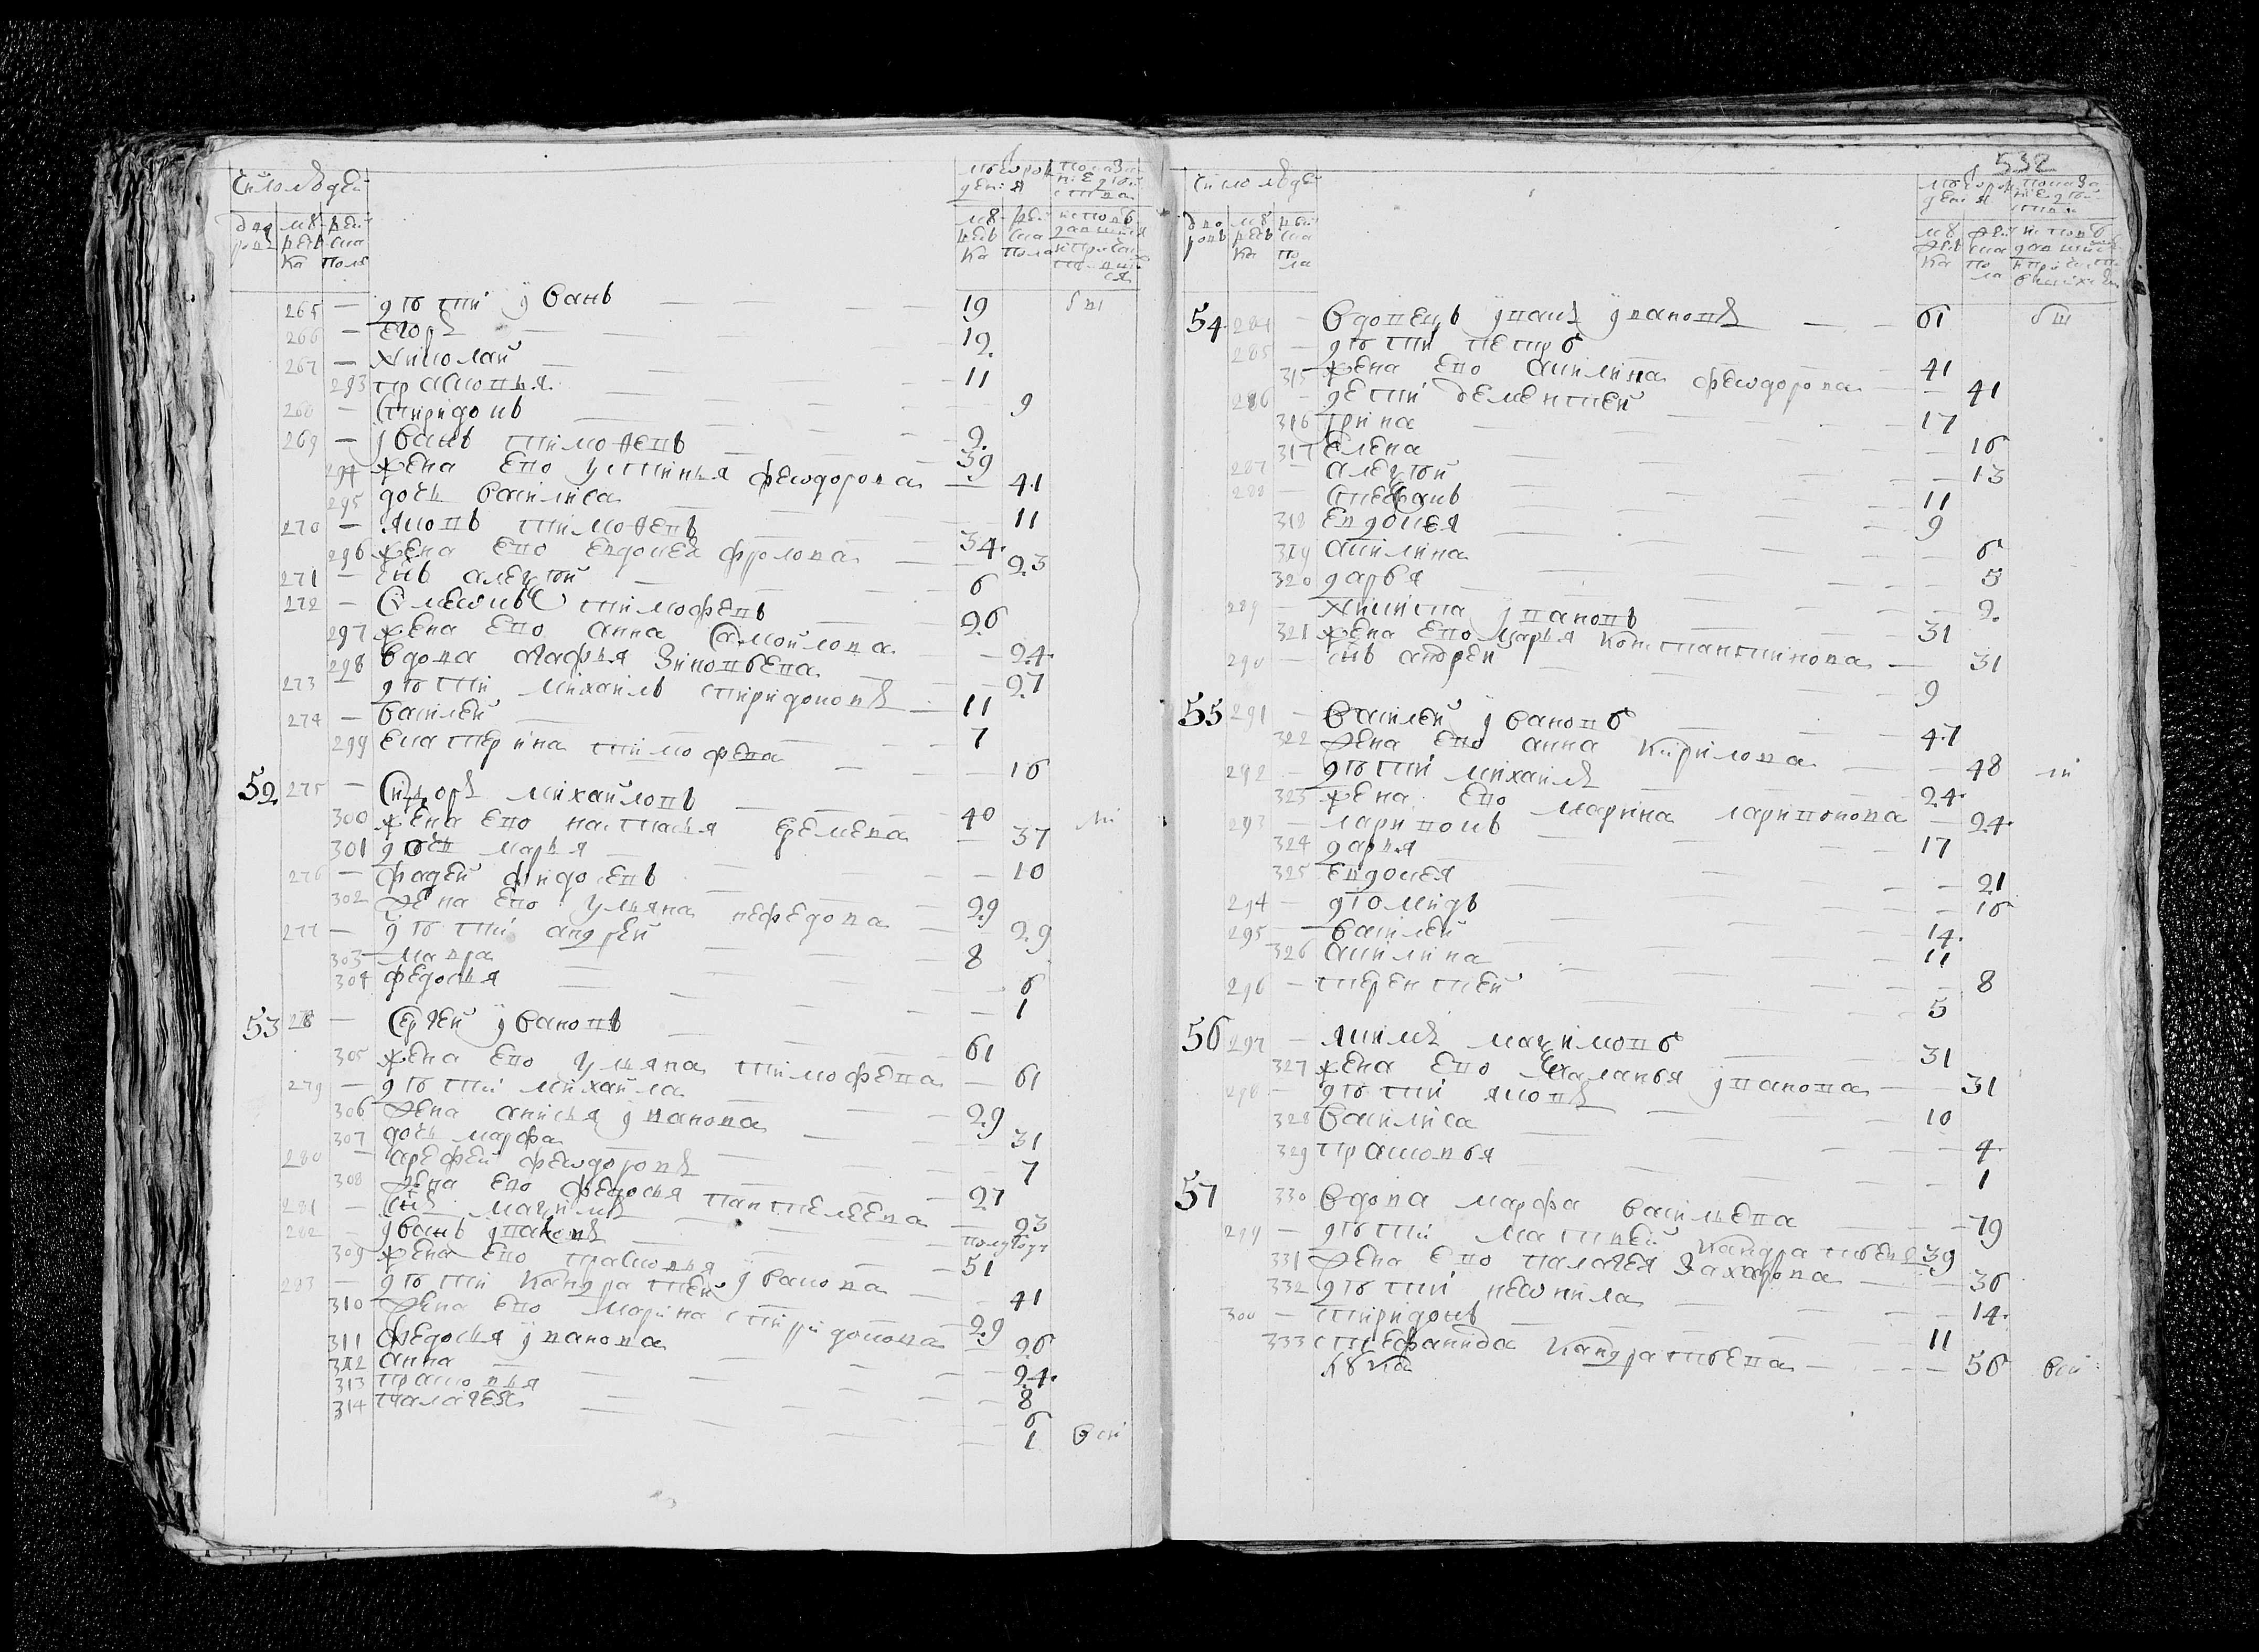 число людей
лѣ рожденія
показаніе дѣйства
дворовъ
мужеска
женска полу
мужеска
женска пола
265 — дѣти иванъ — 19
266 — егоръ — 12
267 — николай — 11
293 прасковья — 9
268 — спиридонъ — 2
269 — иванъ тимоѳеевъ — 39
294 жена ево устинья феодорова — 41
295 дочь василиса — 11
270 — яковъ тимоѳеевъ — 34
296 жена ево евдокея фролова — 23
271 — снъ алеѯѣй — 6
272 — симеонъ тимофеевъ — 26
297 жена ево анна самойлова — 24
298 вдова агафья зиновьева — 27
273 — дѣти михайлъ спиридоновъ — 11
274 — василей — 7
299 екатерина тимофеева — 16
52 275 — сидоръ михайловъ — 40
300 жена ево настасья еремева — 37
301 дочь марья — 10
276 — фадей фидосевъ — 29
302 жена ево ульяна нефедова — 29
277 — дѣти андрей — 8
303 мавра — 6
304 федосья — 1
53 278 — сергей ивановъ — 61
305 жена ево ульяна тимофеева — 61
279 — дѣти михайла — 29
306 жена анисья иванова — 31
307 дочь марфа — 7
280 — арефей феодоровъ — 27
308 жена ево федосья пантелеева — 23
281 — снъ маѯимъ — полугоду
282 — иванъ ивановъ — 51
309 жена ево прасковья иванова — 41
283 — дѣти кандратей — 29
310 жена ево марина спиридонова — 26
311 федосья иванова — 24
312 анна — 8
313 прасковья — 6
314 палагея — 1
532
число людей
лѣ рожденія
дворовъ
мужеска
женска пола
54 284 — вдовецъ иванъ ивановъ — 61
285 — дѣти петръ — 41
315 жена ево акилина феодорова — 41
286 — дети дементей — 17
316 ирина — 16
317 елена — 13
287 — алеѯѣй — 11
288 — стефанъ — 9
318 евдокея — 6
319 акилина — 5
320 дарья — 2
289 — никита ивановъ — 31
321 жена ево марья константинова — 31
290 — снъ андрей — 9
55 291 — василей ивановъ — 47
322 жена ево анна кирилова — 48
292 — дѣти михайлъ — 24
323 жена ево марина ларивонова — 24
293 — ларивонъ — 17
324 дарья — 21
325 евдокея — 16
294 — диомидъ — 14
295 — василей — 11
326 акилина — 8
296 — терентей — 5
56 297 — якимъ маѯимовъ — 31
327 жена ево маланья иванова — 31
298 — дѣти яковъ — 10
328 василиса — 4
329 прасковья — 1
57 330 вдова марфа васильева — 79
299 — дѣти матвей кандратьевъ 39
331 жена ево палагея захарова — 36
332 дѣти неонила — 14
300 — спиридонъ — 11
333 стефанида кандратьева — 56